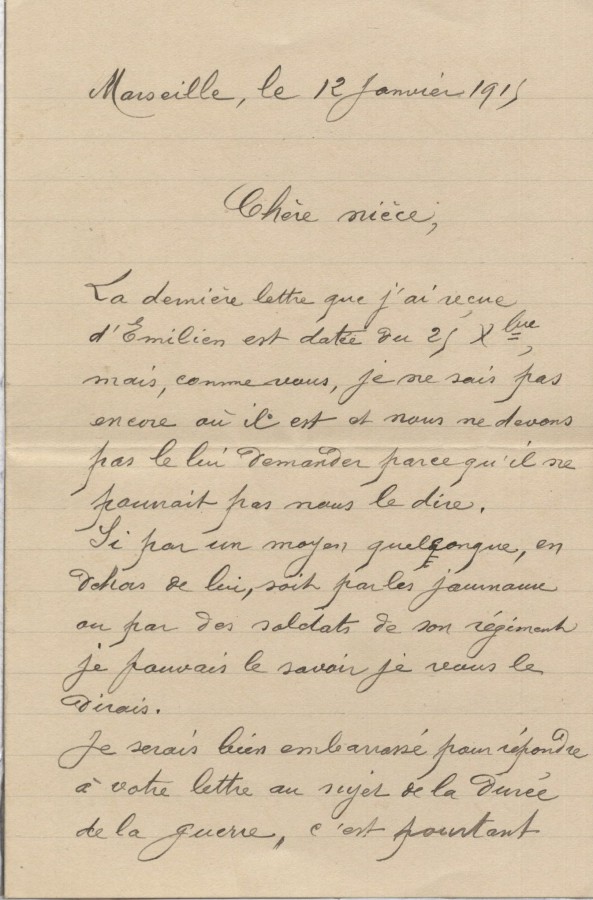 Marseille, le 12 Janvier 1915
Chère nièce,
La dernière lettre que j'ai reçue
d'Emilien est datée du 25 Xbre,
mais, comme vous, je ne sais pas
encore où il est et nous ne devons
pas le lui demander parce qu'il ne
pourrait pas nous le dire.
Si par un moyen quelconque, en
dehors de lui, soit par les journaux
ou par des soldats de son régiment
je pouvais le savoir je vous le
dirais.
Je serais bien embarrassé pour répondre
à votre lettre au sujet de la durée
de la guerre, c'est pourtant